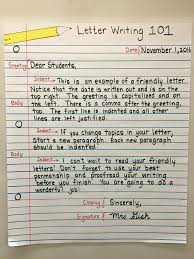 Letter Writing 101
Date November 1, 2016
Greeting Dear Students,
Indent This is an example of a friendly letter.
Notice that the date is written out and is on
the top right. The greeting is capitalized and
on the left. There is a comma after the greeting,
too. The first line is indented and all other
lines are on the left.
Body
Indent If you change topics in your letter,
start a new paragraph. Each new paragraph
should be indented.
Body
Indent I can't wait to read your friendly
letters! Don't forget to use your best
penmanship and proofread your writing
before you finish. You are going to do a
wonderful job!
Closing Sincerely,
Signature Mrs.